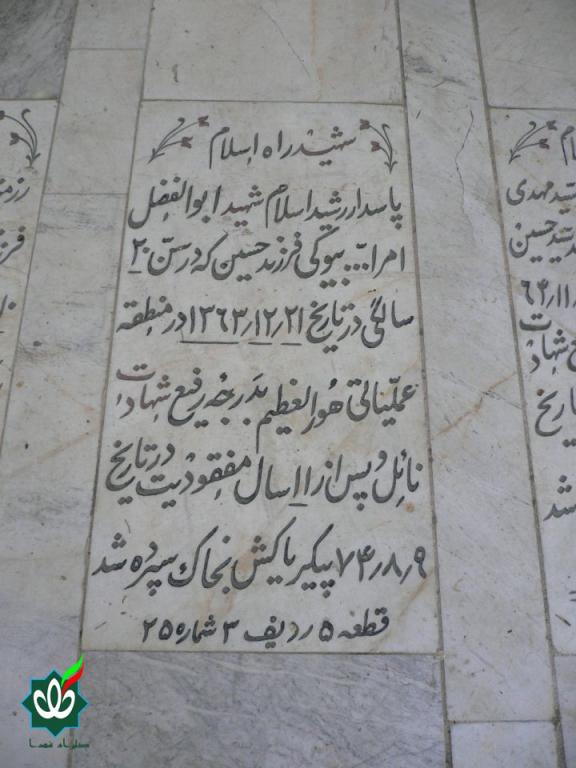 شهید راه اسلام
پاسدار رشید اسلام شهید ابوالفضل
امرا... بیوکی فرزند حسین که در سن ۲۰
سالگی در تاریخ ۱۳۶۳٫۱۲٫۲۱ در منطقه
عملیاتی هورالعظیم بدرجه رفیع شهادت
نائل و پس از ۱۱ سال مفقودیت در تاریخ
۷۴٫۸٫۹ پیکر پاکش بخاک سپرده شد
قطعه ۵ ردیف ۳ شماره ۲۵
سید مهدی
سید حسین
۶۴٫۱۱
شهادت
تاریخ
شد